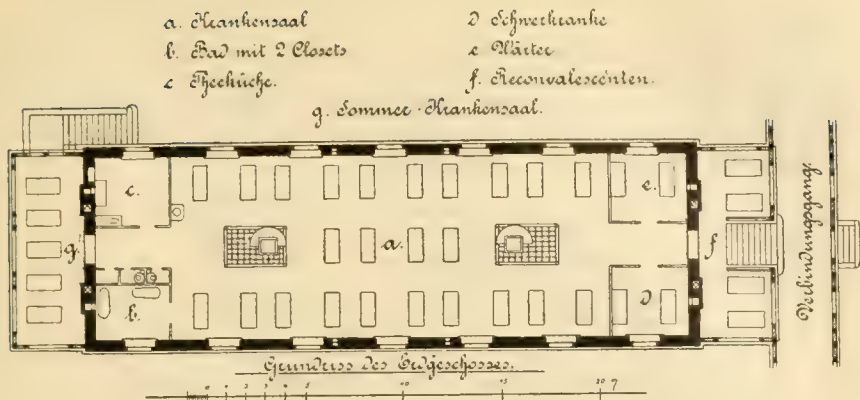 a. Krankensaal
b. Bad mit 2 Closets
c Theeküche.
d Schwerkranke
e Wärter
f. Reconvalescenten.
g. Sommer-Krankensaal.
c.
e.
g.
a.
f
b.
d
Verbindungsgang.
Grundriss des Erdgeschosses.
0 1 2 3 4 5 10 15 20 m